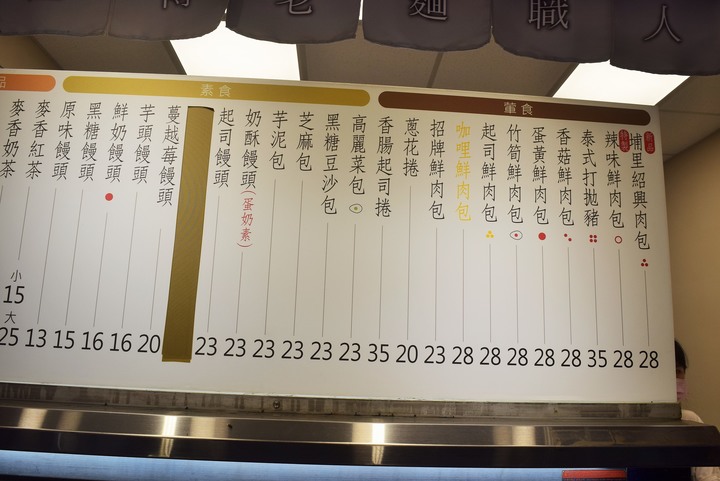 老麵職人
葷食
素食
品
埔里紹興肉包 28
辣味鮮肉包 28
泰式打拋豬 35
香菇鮮肉包 28
蛋黃鮮肉包 28
竹筍鮮肉包 28
起司鮮肉包 28
咖哩鮮肉包 28
招牌鮮肉包 23
蔥花捲 20
香腸起司捲 35
高麗菜包 23
黑糖豆沙包 23
芝麻包 23
芋泥包 23
奶酥饅頭(蛋奶素) 23
起司饅頭 23
蔓越莓饅頭 20
芋頭饅頭 16
鮮奶饅頭 16
黑糖饅頭 15
原味饅頭 13
麥香紅茶 小15 大25
麥香奶茶